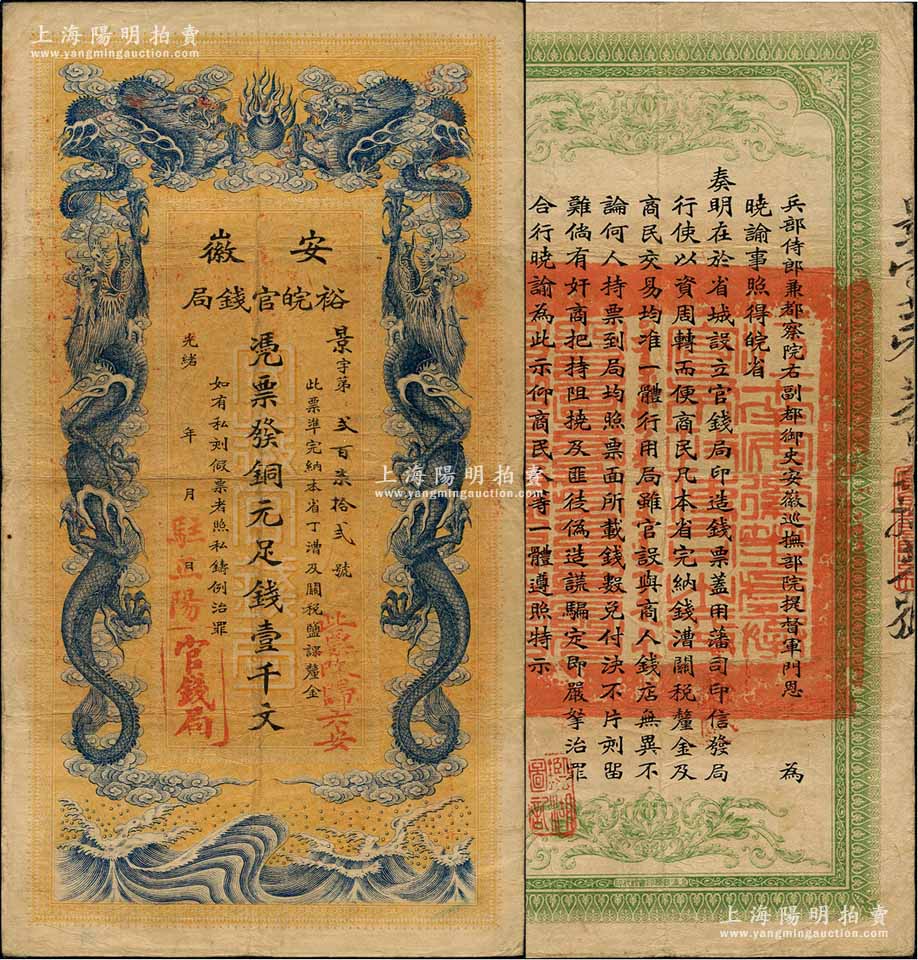 上海陽明拍賣
www.yangmingauction.com
安徽
裕皖官錢局
景字第貳百柒拾貳號
憑票發銅元足錢壹千文
此票準完納本省丁漕及關稅鹽課釐金
如有私刻假票者照私鑄例治罪
光緒年月日
駐正陽
官錢局
此票改歸六安
上海陽明拍賣
www.yangmingauction.com
兵部侍郎兼都察院右副都御史安徽巡撫部院提督軍門恩為
曉諭事照得皖省
奏明在於省城設立官錢局印造錢票蓋用藩司印信發局
行使以資周轉而便商民凡本省完納錢漕關稅釐金及
商民交易均准一體行用局雖官設與商人錢店無異不
論何人持票到局均照票面所載錢數兌付決不片刻留
難倘有奸商把持阻撓及匪徒偽造謊騙定即嚴拏治罪
合行曉諭為此示仰商民人等一體遵照特示
上海陽明拍賣
www.yangmingauction.com